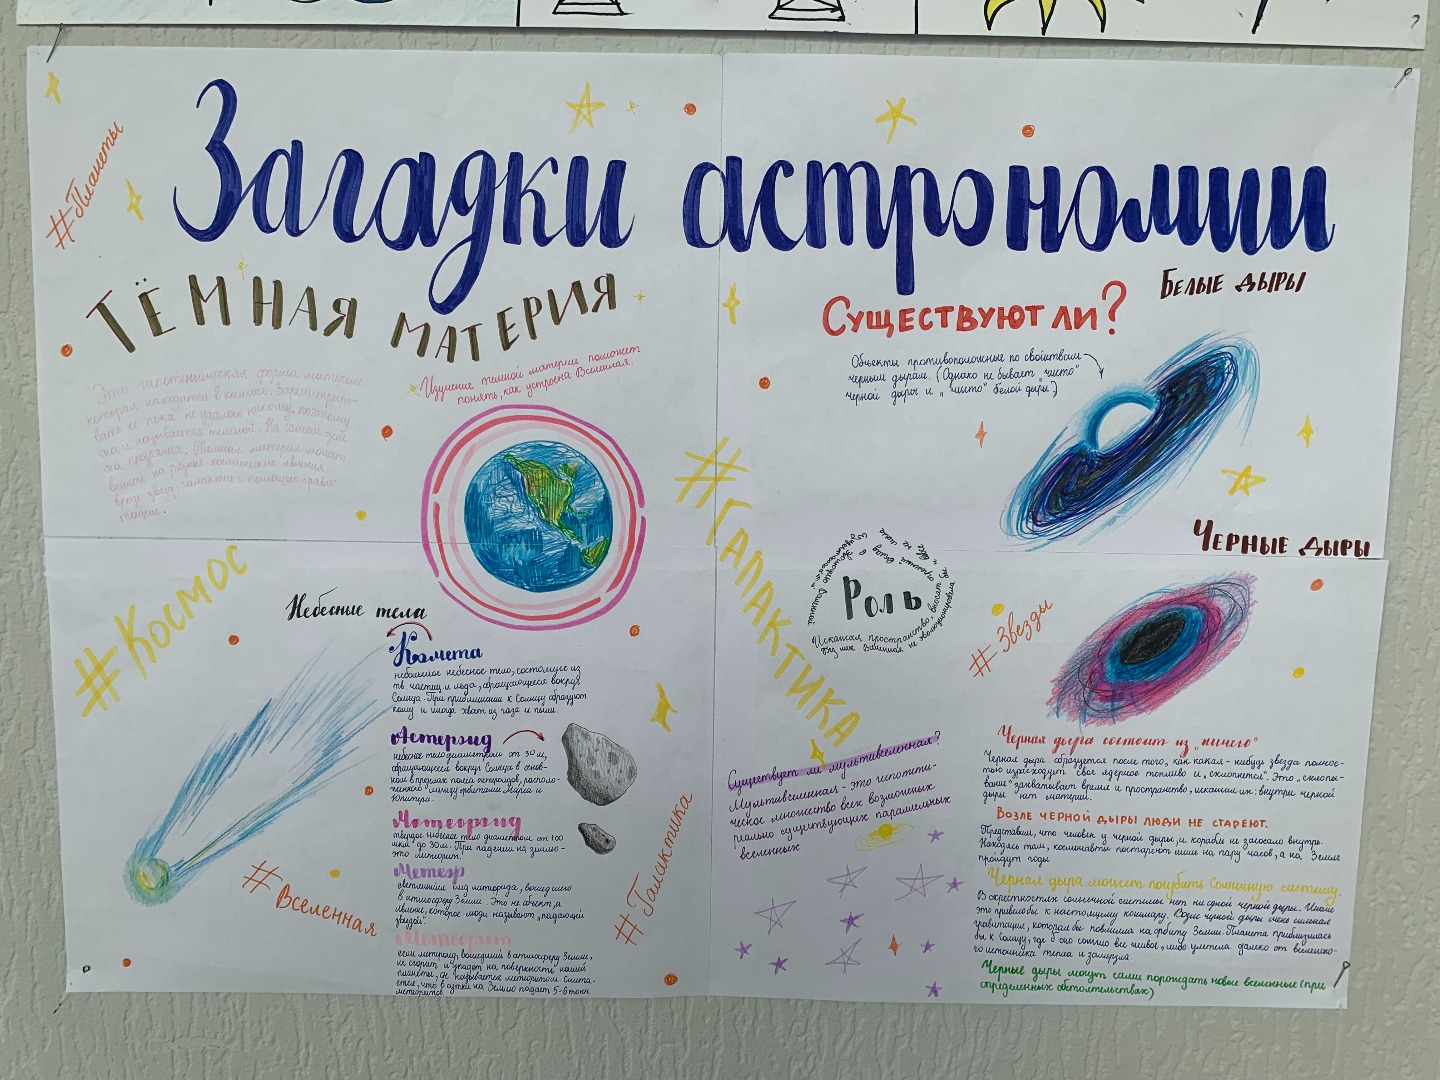 Загадки астрономии
#Планеты
Тёмная материя
Это гипотетическая форма материи
которая находится в космосе. Зарегистриро-
вать её пока не удалось никому, поэтому
она и называется тёмной. На самом деле
она прозрачна. Тёмная материя может
влиять на разные космические явления
вроде звёзд, галактик с помощью грави-
тации.
Изучение темной материи поможет
понять, как устроена Вселенная..
Существуют ли?
Белые дыры
Объекты противоположные по свойствам
черным дырам. (Однако не бывает "чисто"
черной дыры и "чисто" белой дыры)
#Галактика
Черные дыры
Роль
Искажая пространство, вносят
#Звезды
#Космос
Небесные тела
Комета
небольшое небесное тело, состоящее из
тв. частиц и льда, обращающееся вокруг
Солнца. При приближении к Солнцу образуют
кому и иногда хвост из газа и пыли.
Астероид
небесное тело диаметром от 30 м,
обращающееся вокруг Солнца в основ-
ном в пределах пояса астероидов, располо-
женного между орбитами Марса и
Юпитера.
Метеороид
твердое небесное тело диаметром от 100
мкм до 30м. При падении на землю-
это метеорит.
Метеор
светящийся след метеорида, вошедшего
в атмосферу Земли. Это не объект, а
явление, которое люди называют „падающей
звездой".
Метеорит
если метеороид, вошедший в атмосферу Земли,
не сгорит и упадет на поверхность нашей
планеты, он называется метеоритом. Счита-
ется, что в сутки на Землю падает 5-6 тонн
метеоритов
#Вселенная
#Галактика
Существует ли мультивселенная?
Мультивселенная - это гипотети-
ческое множество всех возможных
реально существующих параллельных
вселенных
Черная дыра состоит из „ничего"
Черная дыра образуется после того, как какая-нибудь звезда полнос-
тью израсходует свое ядерное топливо и „схлопнется". Это „схлопы-
вание" захватывает время и пространство, искажая их: внутри черной
дыры нет материи.
Возле черной дыры люди не стареют.
Представим, что человек у черной дыры, и корабль не засосало внутрь.
Находясь там, космонавты постареют лишь на пару часов, а на Земле
пройдут годы
Черная дыра может погубить Солнечную систему.
В окрестностях солнечной системы нет ни одной черной дыры. Иначе
это привело бы к настоящему кошмару. Возле черной дыры очень сильная
гравитация, которая бы повлияла на орбиту Земли. Планета приблизилась
бы к Солнцу, где б оно сожгло все живое, либо улетела далеко от вселенско-
го источника тепла и замерзла.
Черные дыры могут сами порождать новые вселенные (при
определенных обстоятельствах)